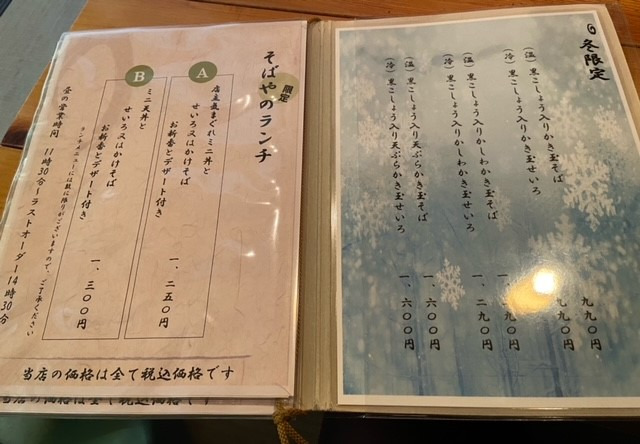 冬限定
(温) 黒こしょう入りかき玉そば 九九〇円
(冷) 黒こしょう入りかき玉せいろ 九九〇円
(温) 黒こしょう入りかしわかき玉そば 一、二九〇円
(冷) 黒こしょう入りかしわかき玉せいろ 一、二九〇円
(温) 黒こしょう入り天ぷらかき玉そば 一、六〇〇円
(冷) 黒こしょう入り天ぷらかき玉せいろ 一、六〇〇円
限定
そばやのランチ
A
店主気まぐれミニ丼と
せいろ又はかけそば
お新香とデザート付き
一、二五〇円
B
ミニ天丼と
せいろ又はかけそば
お新香とデザート付き
一、三〇〇円
ランチメニューには数に限りがございますので、ご了承ください
昼の営業時間 11時30分〜ラストオーダー14時30分
当店の価格は全て税込価格です
当店の価格は全て税込価格です